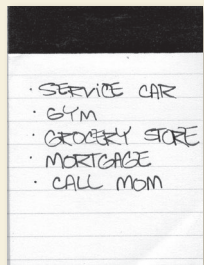 · SERVICE CAR
· GYM
· GROCERY STORE
· MORTGAGE
· CALL MOM